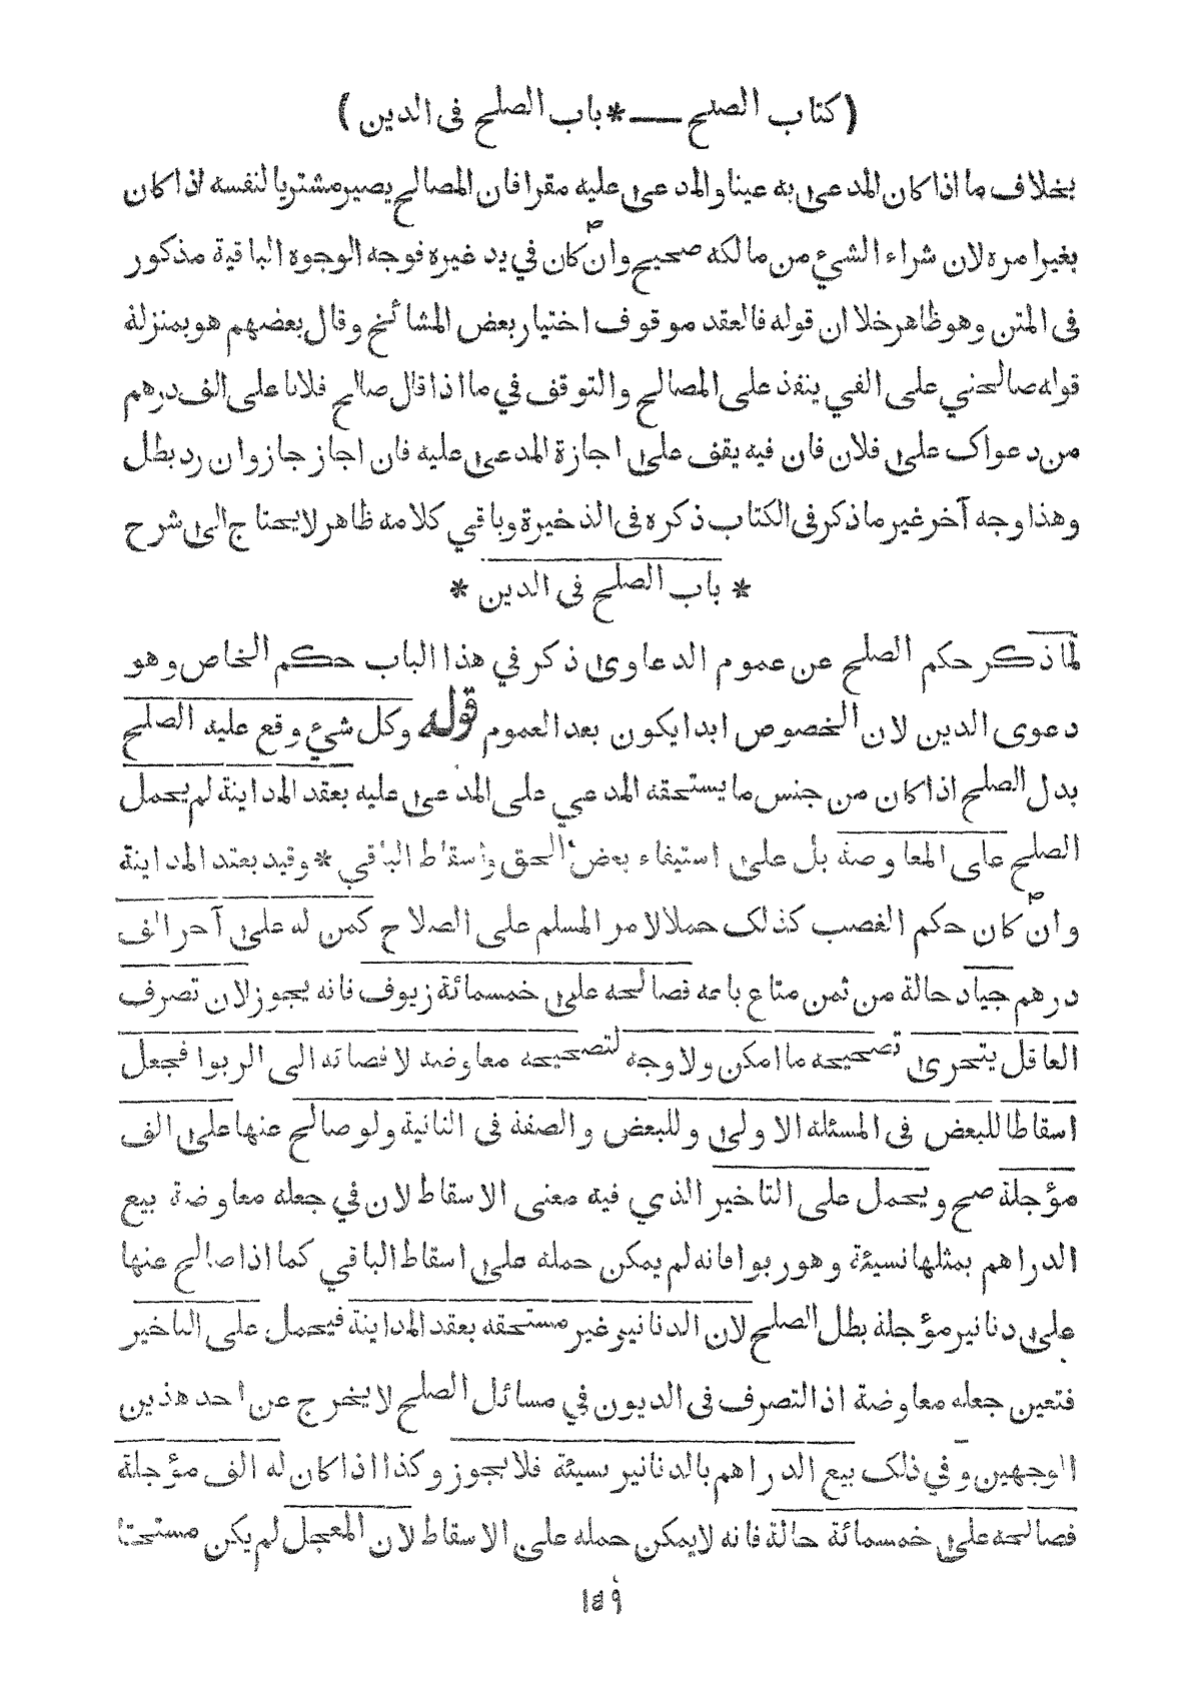 (كتاب الصلح — * باب الصلح فى الدين)
بخلاف ما اذا كان المدعى به عينا والمدعى عليه مقرا فان المصالح يصير مشتريا لنفسه اذا كان
بغير امره لان شراء الشيء من مالكه صحيح وان كان في يد غيره فوجه الوجوه الباقية مذكور
فى المتن وهو ظاهر خلا ان قوله فالعقد موقوف اختيار بعض المشائخ وقال بعضهم هو بمنزلة
قوله صالحني على الفي ينفذ على المصالح والتوقف في ما اذا قال صالح فلانا على الف درهم
من دعواك على فلان فان فيه يقف على اجازة المدعى عليه فان اجاز جاز وان رد بطل
وهذا وجه آخر غير ما ذكر فى الكتاب ذكره فى الذخيرة وباقي كلامه ظاهر لا يحتاج الى شرح
* باب الصلح فى الدين *
لما ذكر حكم الصلح عن عموم الدعاوى ذكر في هذا الباب حكم الخاص وهو
دعوى الدين لان الخصوص ابدا يكون بعد العموم قوله وكل شيء وقع عليه الصلح
بدل الصلح اذا كان من جنس ما يستحقه المدعي على المدعى عليه بعقد المداينة لم يحمل
الصلح على المعاوضة بل على استيفاء بعض الحق واسقاط الباقي * وقيد بعقد المداينة
وان كان حكم الغصب كذلك حملا لامر المسلم على الصلاح كمن له على آخر الف
درهم جياد حالة من ثمن متاع باعه فصالحه على خمسمائة زيوف فانه يجوز لان تصرف
العاقل يتحرى تصحيحه ما امكن ولا وجه لتصحيحه معاوضة لافضائه الى الربوا فجعل
اسقاطا للبعض فى المسئلة الاولى وللبعض والصفة فى الثانية ولو صالح عنها على الف
مؤجلة صح ويحمل على التاخير الذي فيه معنى الاسقاط لان في جعله معاوضة بيع
الدراهم بمثلها نسيئة وهو ربوا فانه لم يمكن حمله على اسقاط الباقي كما اذا صالح عنها
على دنانير مؤجلة بطل الصلح لان الدنانير غير مستحقه بعقد المداينة فيحمل على التاخير
فتعين جعله معاوضة اذ التصرف فى الديون في مسائل الصلح لا يخرج عن احد هذين
الوجهين وفي ذلك بيع الدراهم بالدنانير نسيئة فلا يجوز وكذا اذا كان له الف مؤجلة
فصالحه على خمسمائة حالة فانه لا يمكن حمله على الاسقاط لان المعجل لم يكن مستحقا